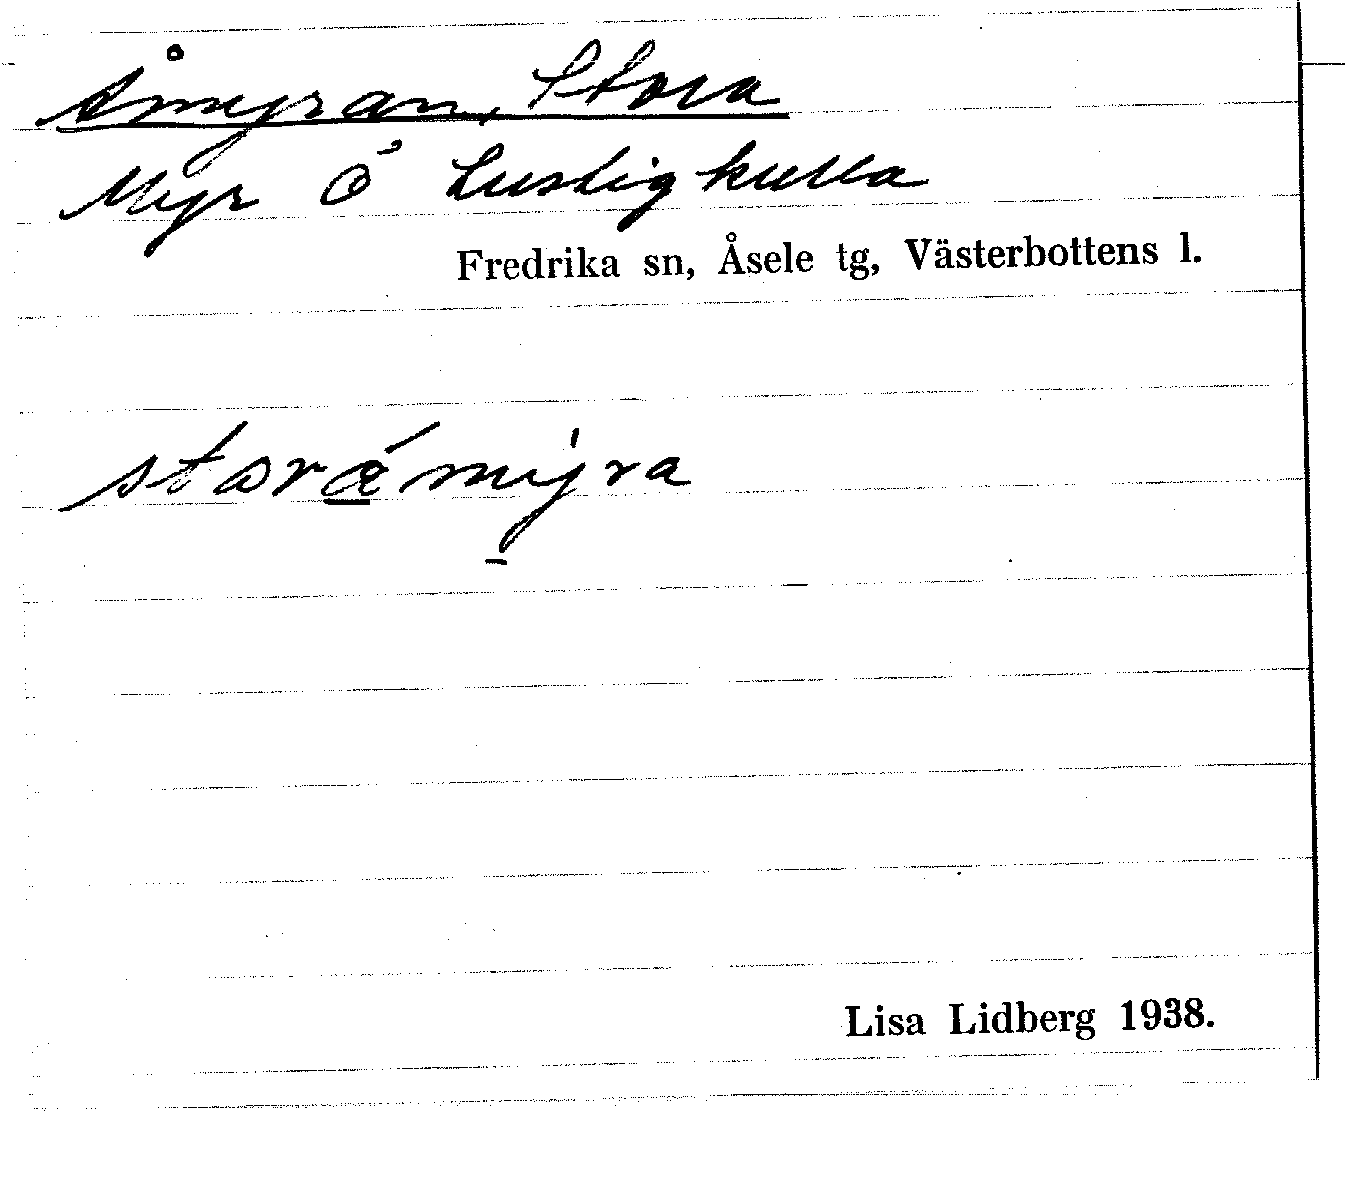 Åmyran, Stora
Myr Ö Lustigkulla
Fredrika sn, Åsele tg, Västerbottens l.
storámýra
Lisa Lidberg 1938.